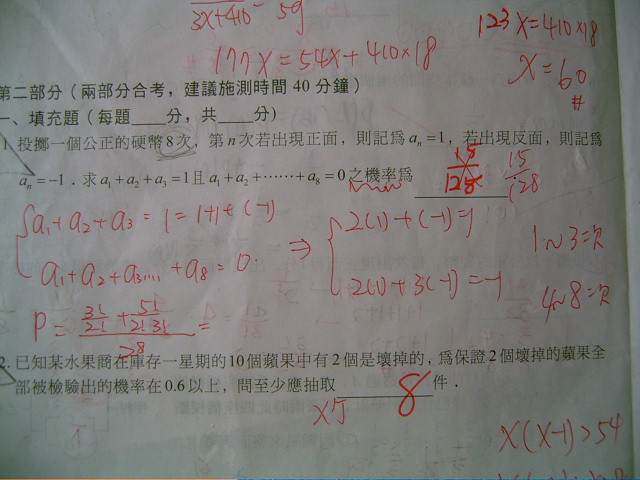 3X+410 = 59
177X = 54X + 410×18
123X = 410×18
X = 60 #
第二部分（兩部分合考，建議施測時間 40 分鐘）
一、填充題（每題____分，共____分）
1 投擲一個公正的硬幣8次，第 n 次若出現正面，則記為 aₙ=1，若出現反面，則記為
aₙ=-1．求 a₁+a₂+a₃=1且 a₁+a₂+⋯⋯+a₈=0之機率為 15/128 15/128
a₁+a₂+a₃ = 1 = 1+1+(-1) ⇒ 2(1)+(-1)=1 1~3=次
a₁+a₂+a₃…+a₈=0. 2(1)+3(-1)=-1 4~8=次
P = (3!/2! + 5!/2!3!)/2⁸ =
2. 已知某水果商在庫存一星期的10個蘋果中有2個是壞掉的，為保證2個壞掉的蘋果全
部被檢驗出的機率在0.6以上，問至少應抽取 8 件．
X(X-1)>54